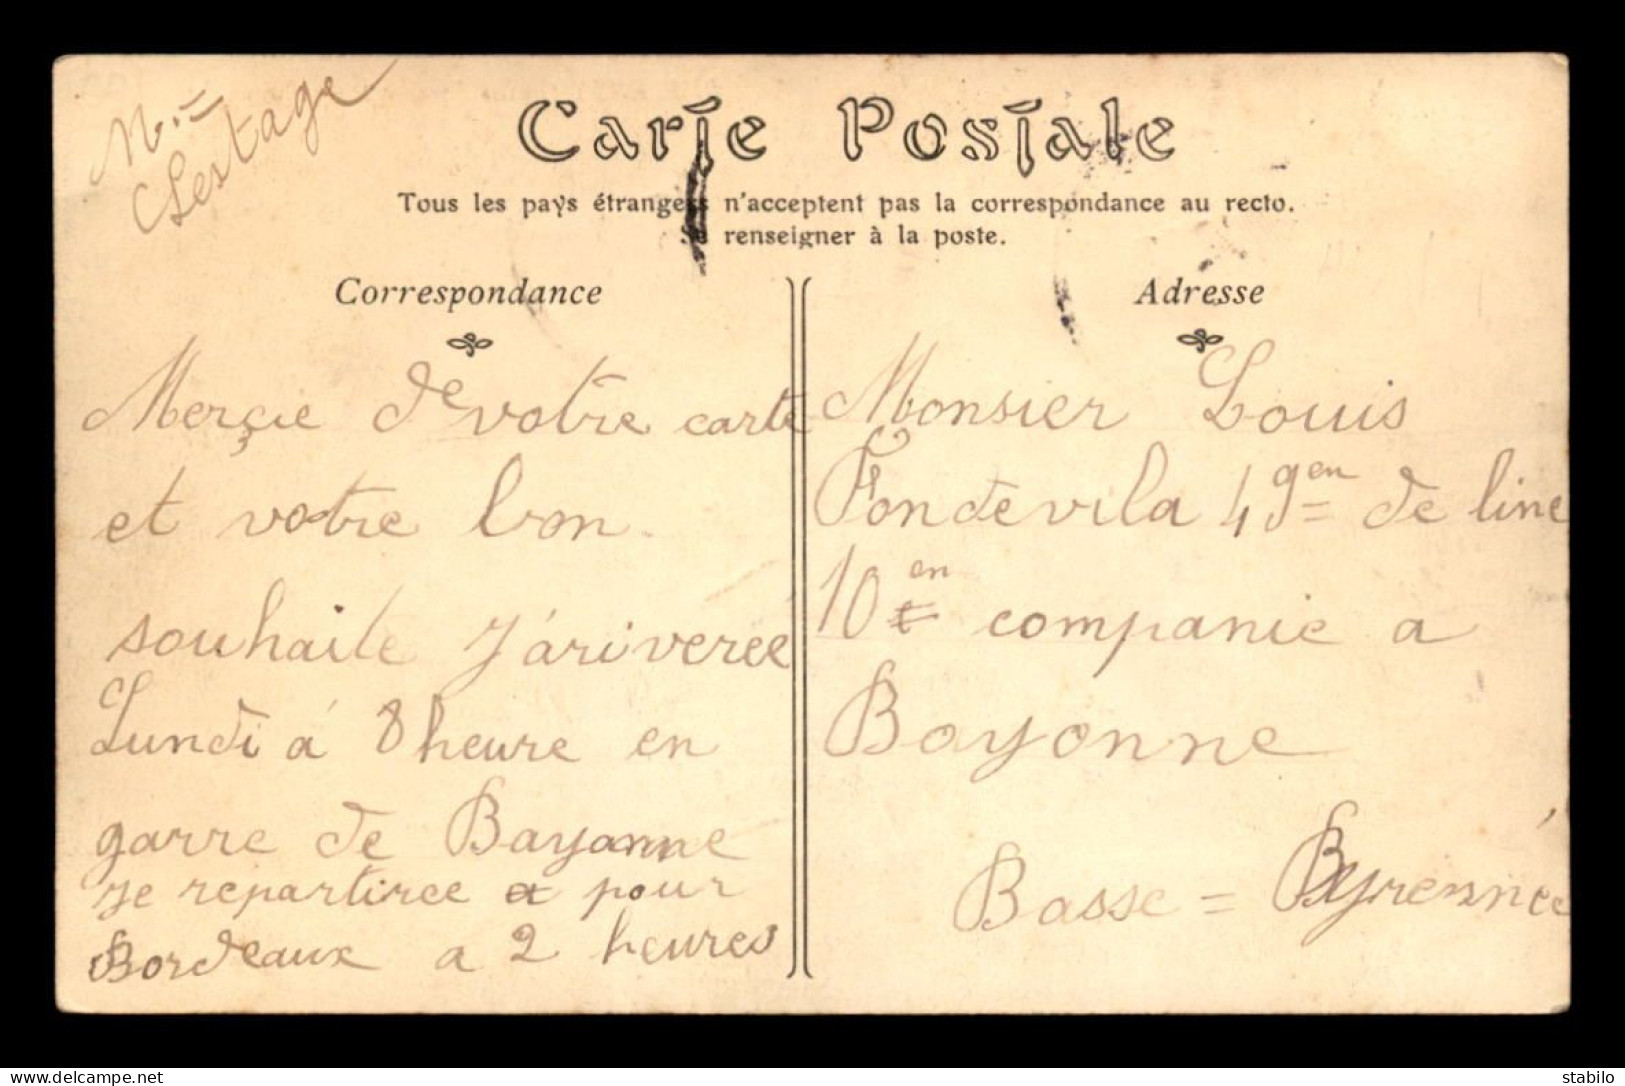 M.
Lestage
Carte Postale
Tous les pays étrangers n'acceptent pas la correspondance au recto.
Se renseigner à la poste.
Correspondance
Merçie de votre carte
et votre bon
souhaite J'áriverée
Lundi á 8 heure en
garre de Bayonne
je repartiree pour
Bordeaux a 2 heures
Adresse
Monsier Louis
Fondevila 49en de line
10en companie a
Bayonne
Basse = Pyrennée
delcampe.net
stabilo